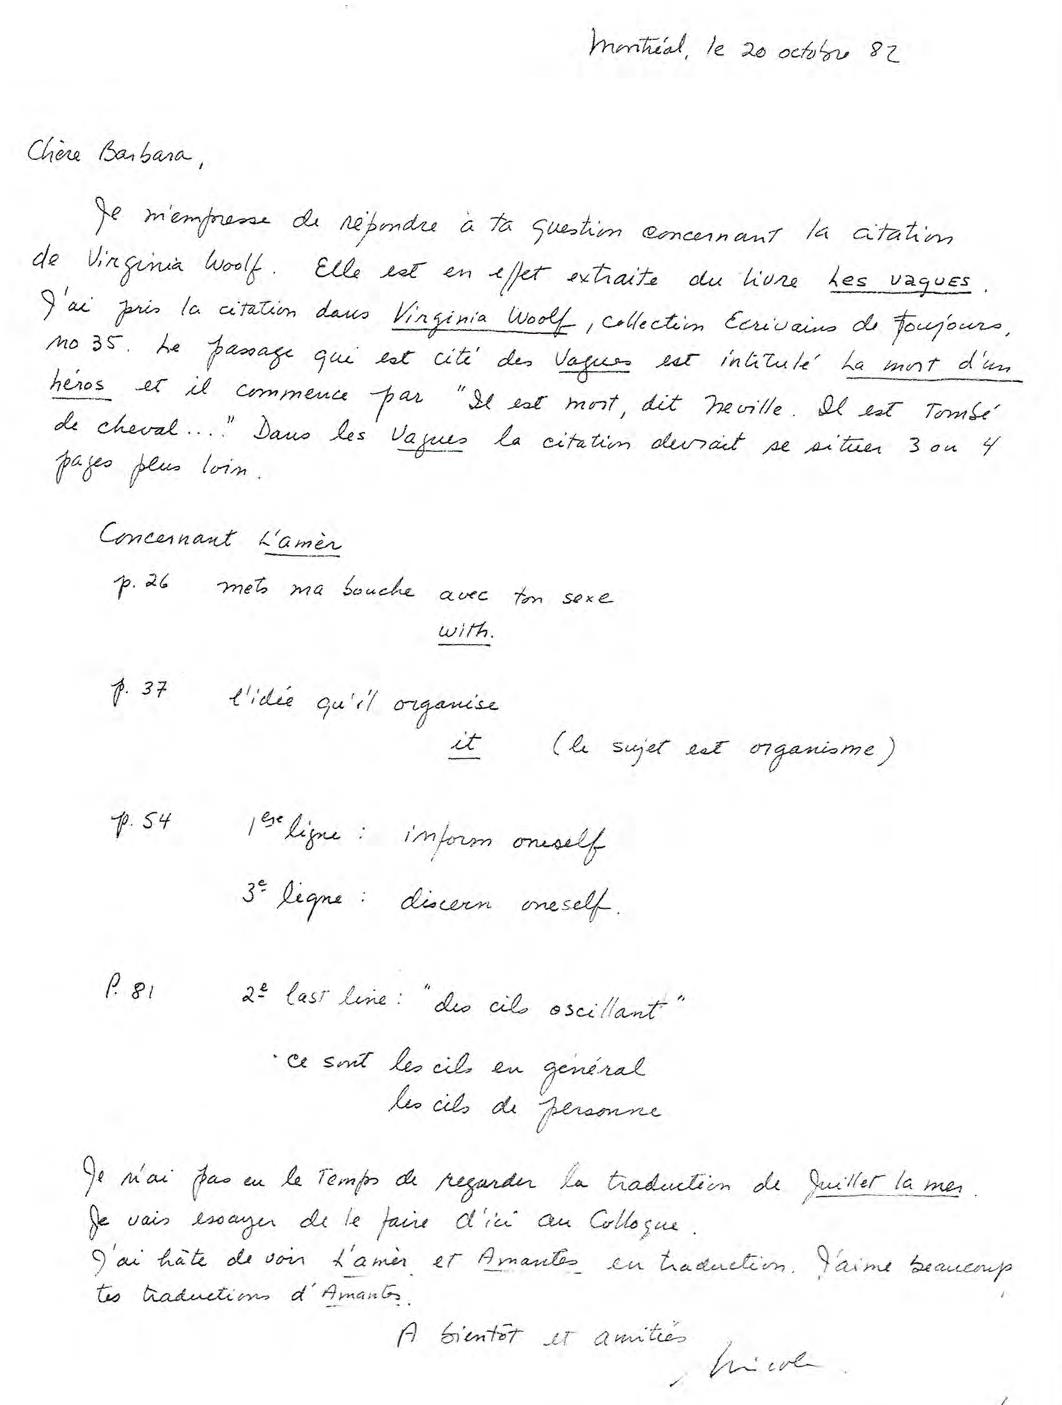 Montréal, le 20 octobre 82
Chère Barbara,
Je m'empresse de répondre à ta question concernant la citation
de Virginia Woolf. Elle est en effet extraite du livre Les vagues.
J'ai pris la citation dans Virginia Woolf, collection Ecrivains de Toujours,
no 35. Le passage qui est cité des Vagues est intitulé La mort d'un
héros et il commence par "Il est mort, dit Neville. Il est Tombé
de cheval...." Dans les Vagues la citation devrait se situer 3 ou 4
pages plus loin.
Concernant L'amèr
p. 26 mets ma bouche avec ton sexe
with.
p. 37 l'idée qu'il organise
it (le sujet est organisme)
p. 54 1ère ligne : inform oneself
3e ligne : discern oneself.
P. 81 2e last line : "des cils oscillant"
· ce sont les cils en général
les cils de personne
Je n'ai pas eu le Temps de regarder la traduction de Juillet la mer.
Je vais essayer de le faire d'ici au Colloque.
J'ai hâte de voir L'amèr et Amantes en traduction. J'aime beaucoup
tes traductions d'Amantes.
A bientôt et amitiés
Nicole